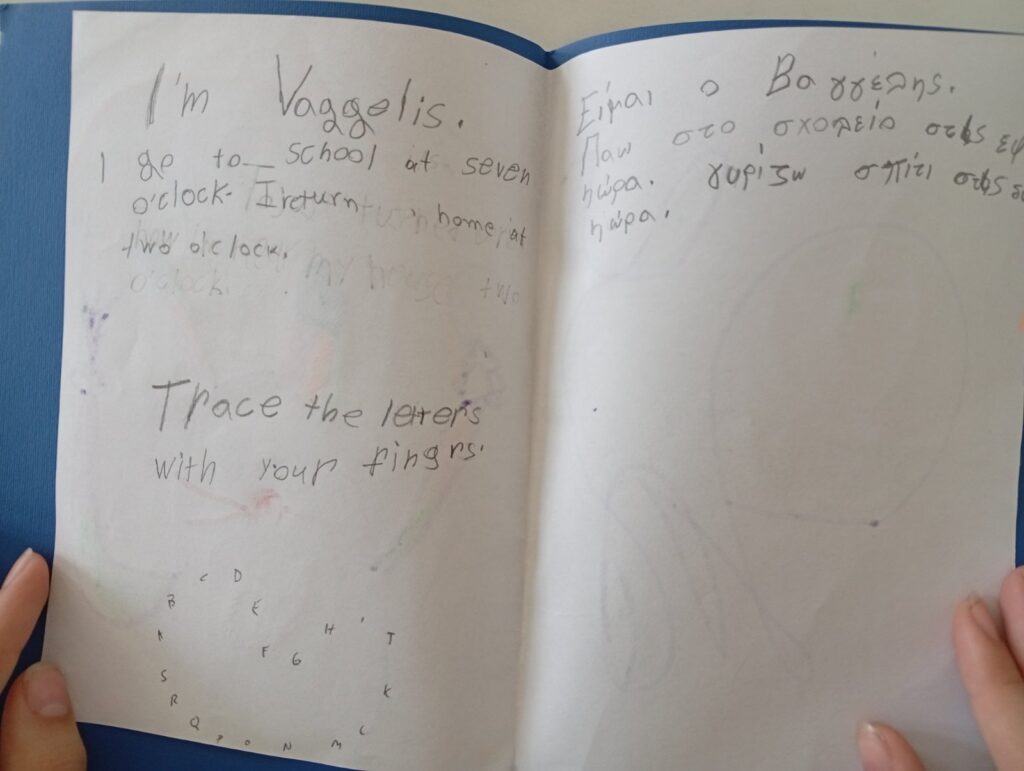 I'm Vaggelis.
I go to school at seven
o'clock. I return home at
two o'clock.
Trace the letters
with your fingrs.
C D
B E
H I T
A F G
S K
R L
Q P O N M
Είμαι ο Βαγγέλης.
Παω στο σχολείο στις
ηώρα. γυρίζω σπίτι στις
ηώρα.